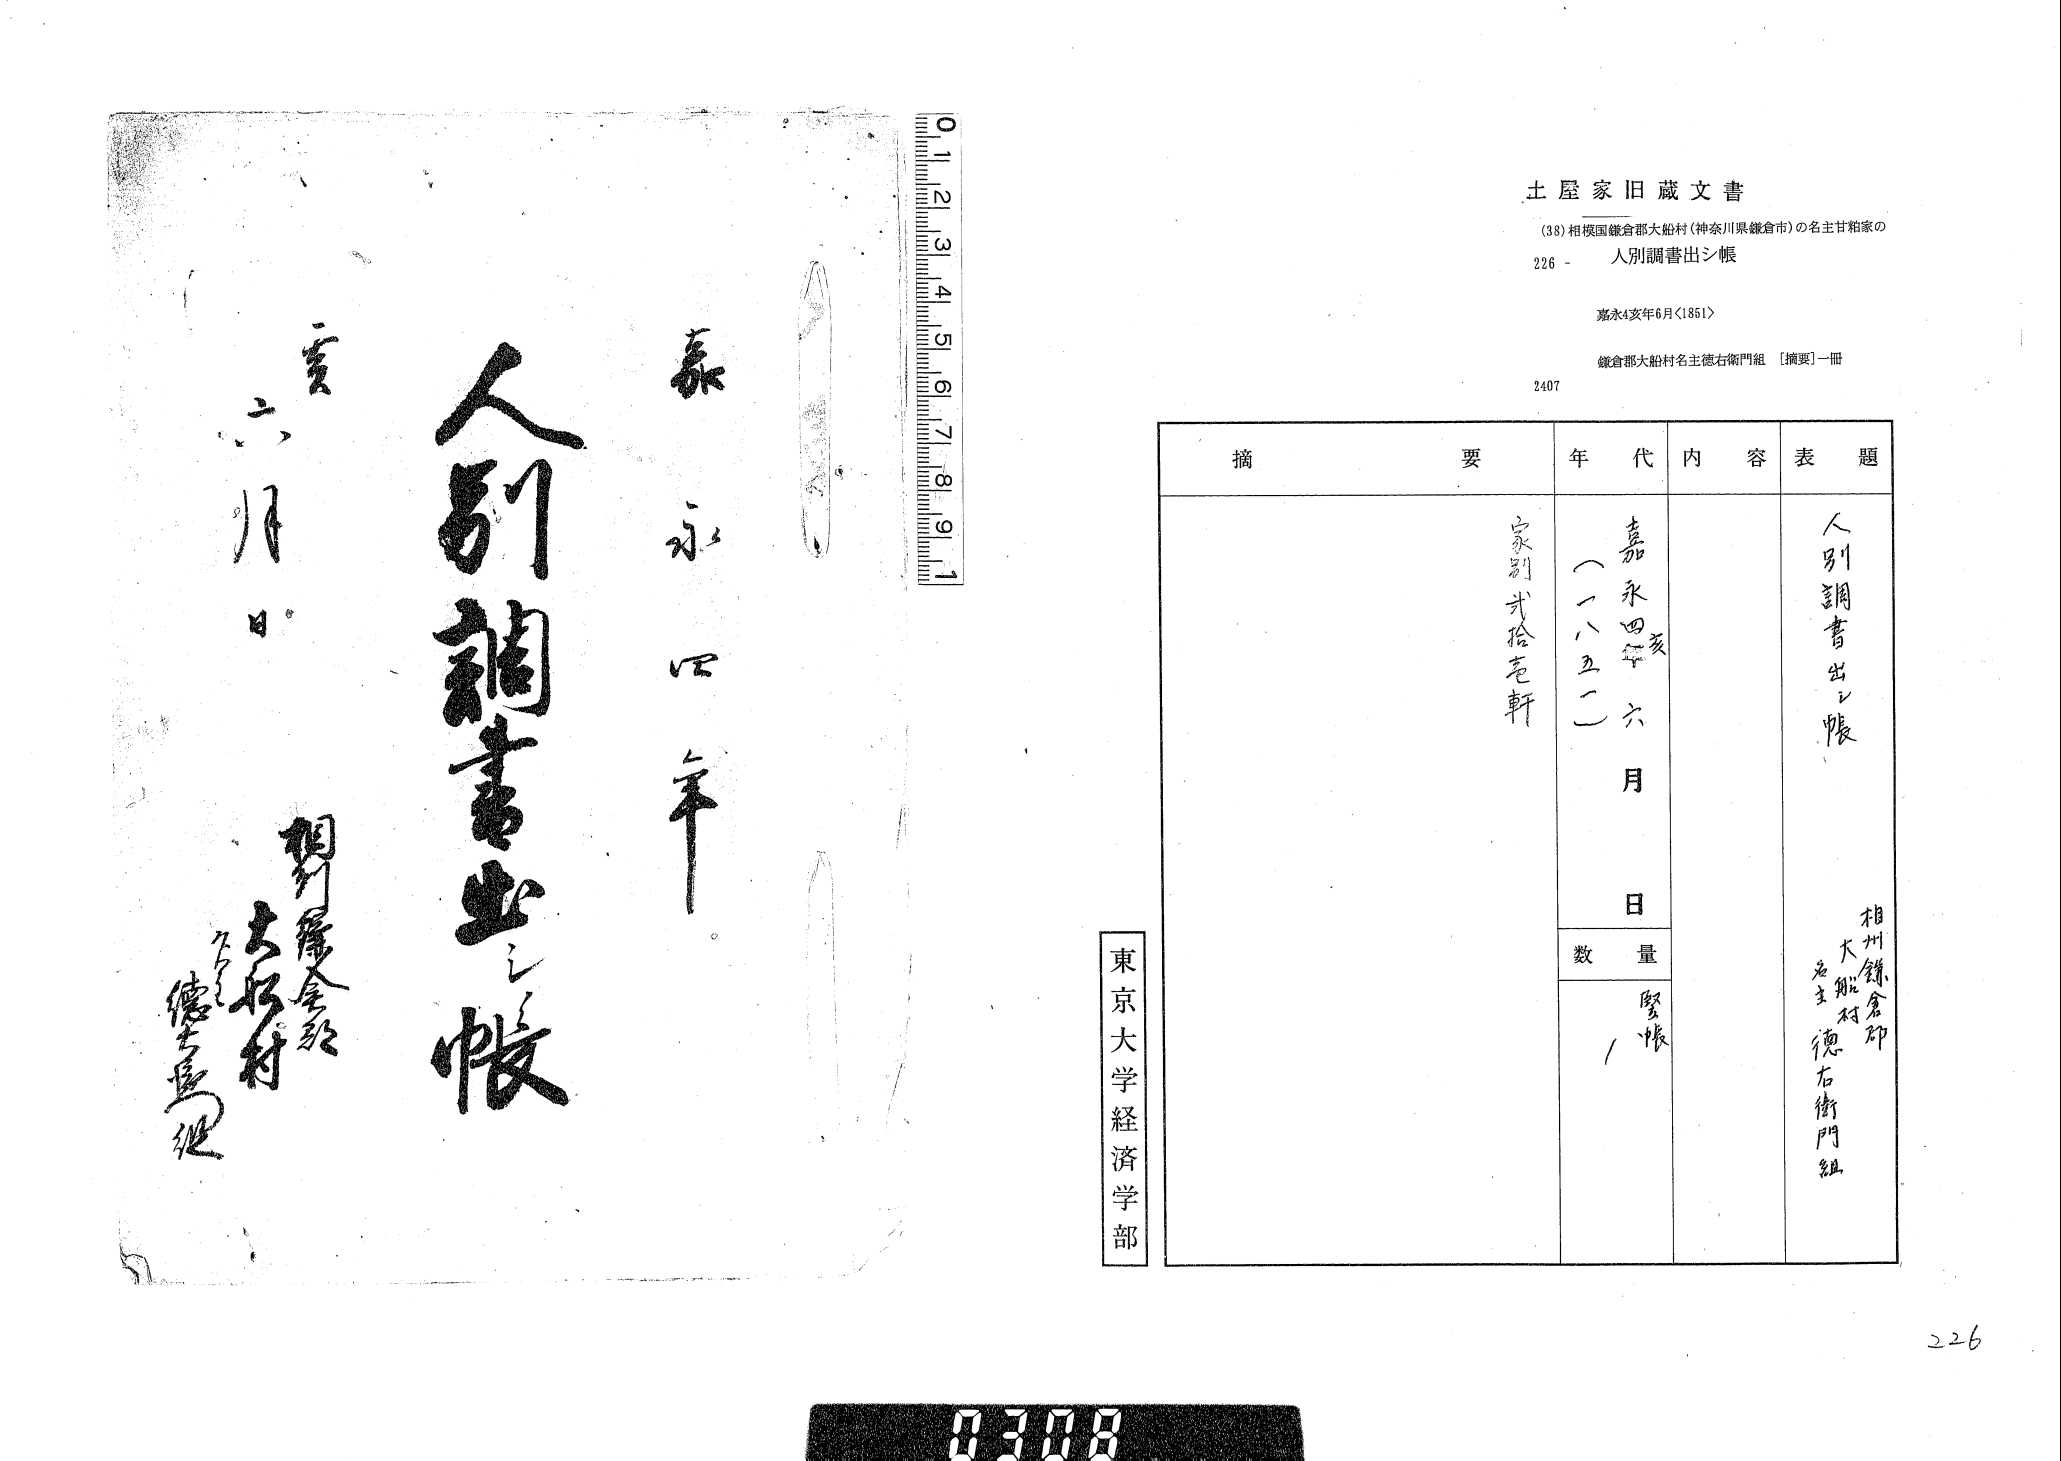 土屋家旧蔵文書
(38)相模国鎌倉郡大船村(神奈川県鎌倉市)の名主甘粕家の
226 - 人別調書出シ帳
嘉永4亥年6月<1851>
鎌倉郡大船村名主徳右衛門組 [摘要]一冊
2407
表題
内容
年代
摘要
人別調書出シ帳
相州鎌倉郡
大船村
名主 徳右衛門組
嘉永四亥年六月 日
(一八五一)
数量
竪帳
1
家別弐拾壱軒
東京大学経済学部
226
0 1 2 3 4 5 6 7 8 9 1
嘉永四年
人別調書出シ帳
亥
六月日
相州鎌倉郡
大船村
名主
徳右衛門組
0308